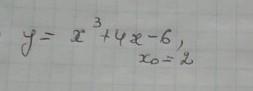 y = x³ + 4x - 6,
x₀ = 2